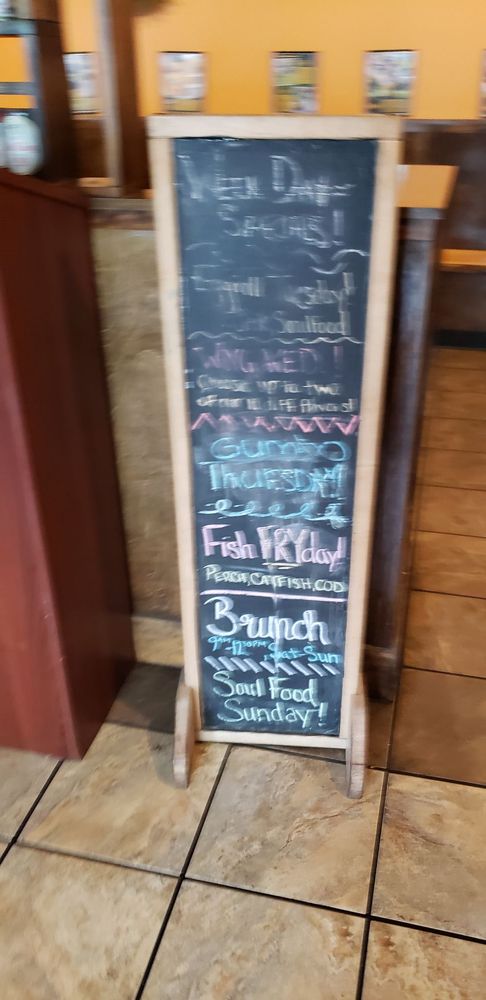 Week Day
Specials!
Eggroll Tuesday!
Soulfood
Wing WED!
Choose up to two
of our
Gumbo
THURSDAY!
Fish FRYday!
PERCH, CATFISH, COD
Brunch
9AM Sat-Sun
Soul Food
Sunday!